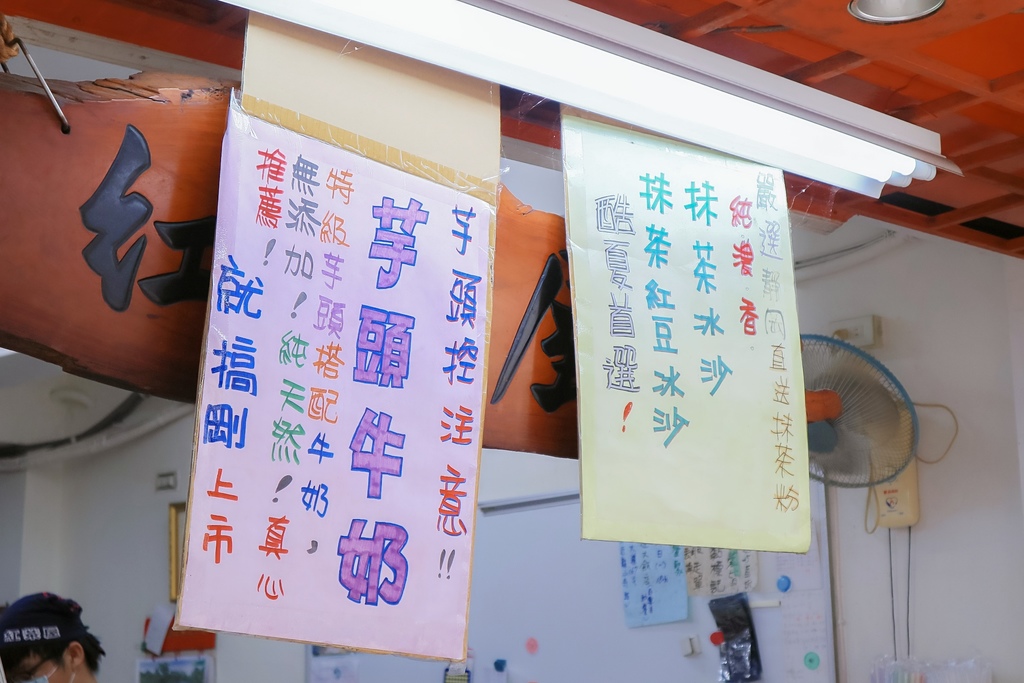 芋頭控注意!!
芋頭牛奶
特級芋頭搭配牛奶,
無添加!純天然!真心
推薦!
就搞剛上市
嚴選靜岡直送抹茶粉
純濃香
抹茶冰沙
抹茶紅豆冰沙
酷夏首選!
紅